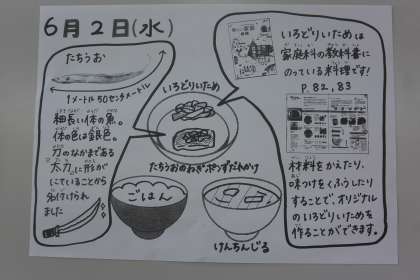 6月2日(水)
たちうお
1メートル50センチメートル
細長い体の魚。
体の色は銀色。
刀のなかまである
太刀に形が
にていることから
名付けられ
ました
いろどりいため
たちうおのねぎポンずだれかけ
ごはん
けんちんじる
いろどりいためは
家庭科の教科書に
のっている料理です!
P.82,83
材料をかえたり、
味つけをくふうしたり
することで、オリジナル
のいろどりいためを
作ることができます。